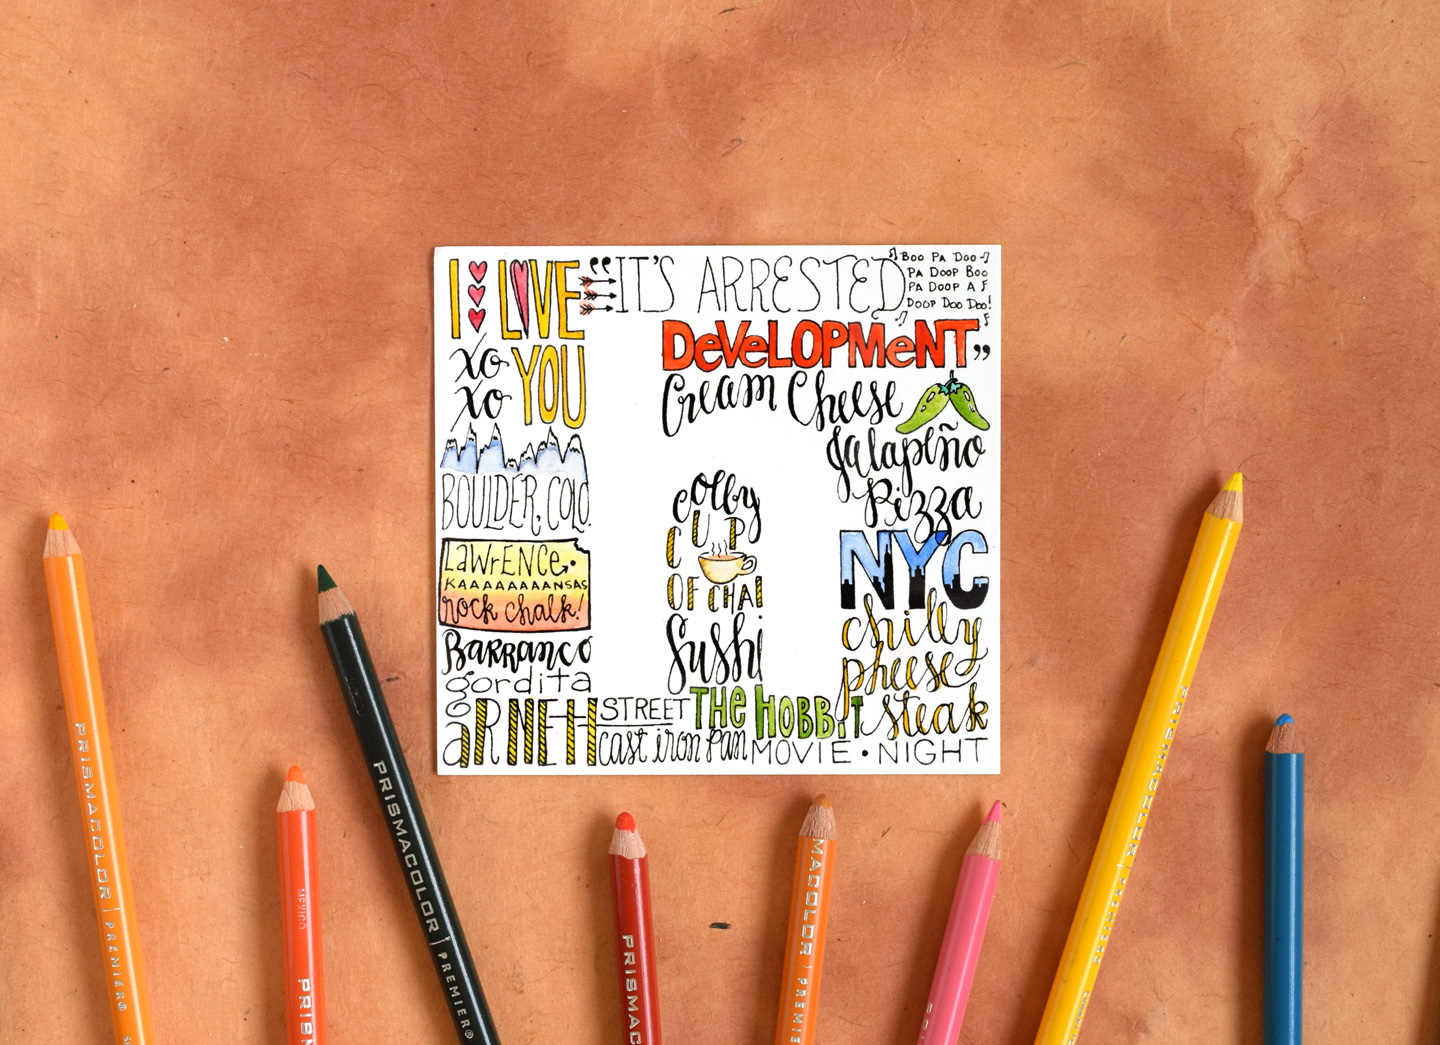 I LOVE
XO YOU
XO
"IT'S ARRESTED
DEVELOPMENT"
BOO PA DOO
PA DOOP BOO
PA DOOP A
DOOP DOO DOO!
Cream Cheese
Jalapeño
Pizza
BOULDER, COLO.
LAWRENCE
KAAAAAAAANSAS
rock chalk!
BARRANCO
gordita
ARNEH
colby
CUP
OF CHAI
Sushi
NYC
chilly
pheese
steak
STREET
THE HOBBIT
cast iron pan
MOVIE • NIGHT
PRISMACOLOR | PREMIER®
MEXICO
PRISM
PRISMACOLOR | PREMIER®
PRISMAC
MACOLOR | PREMIE
PRISMACOLOR | PREMIER